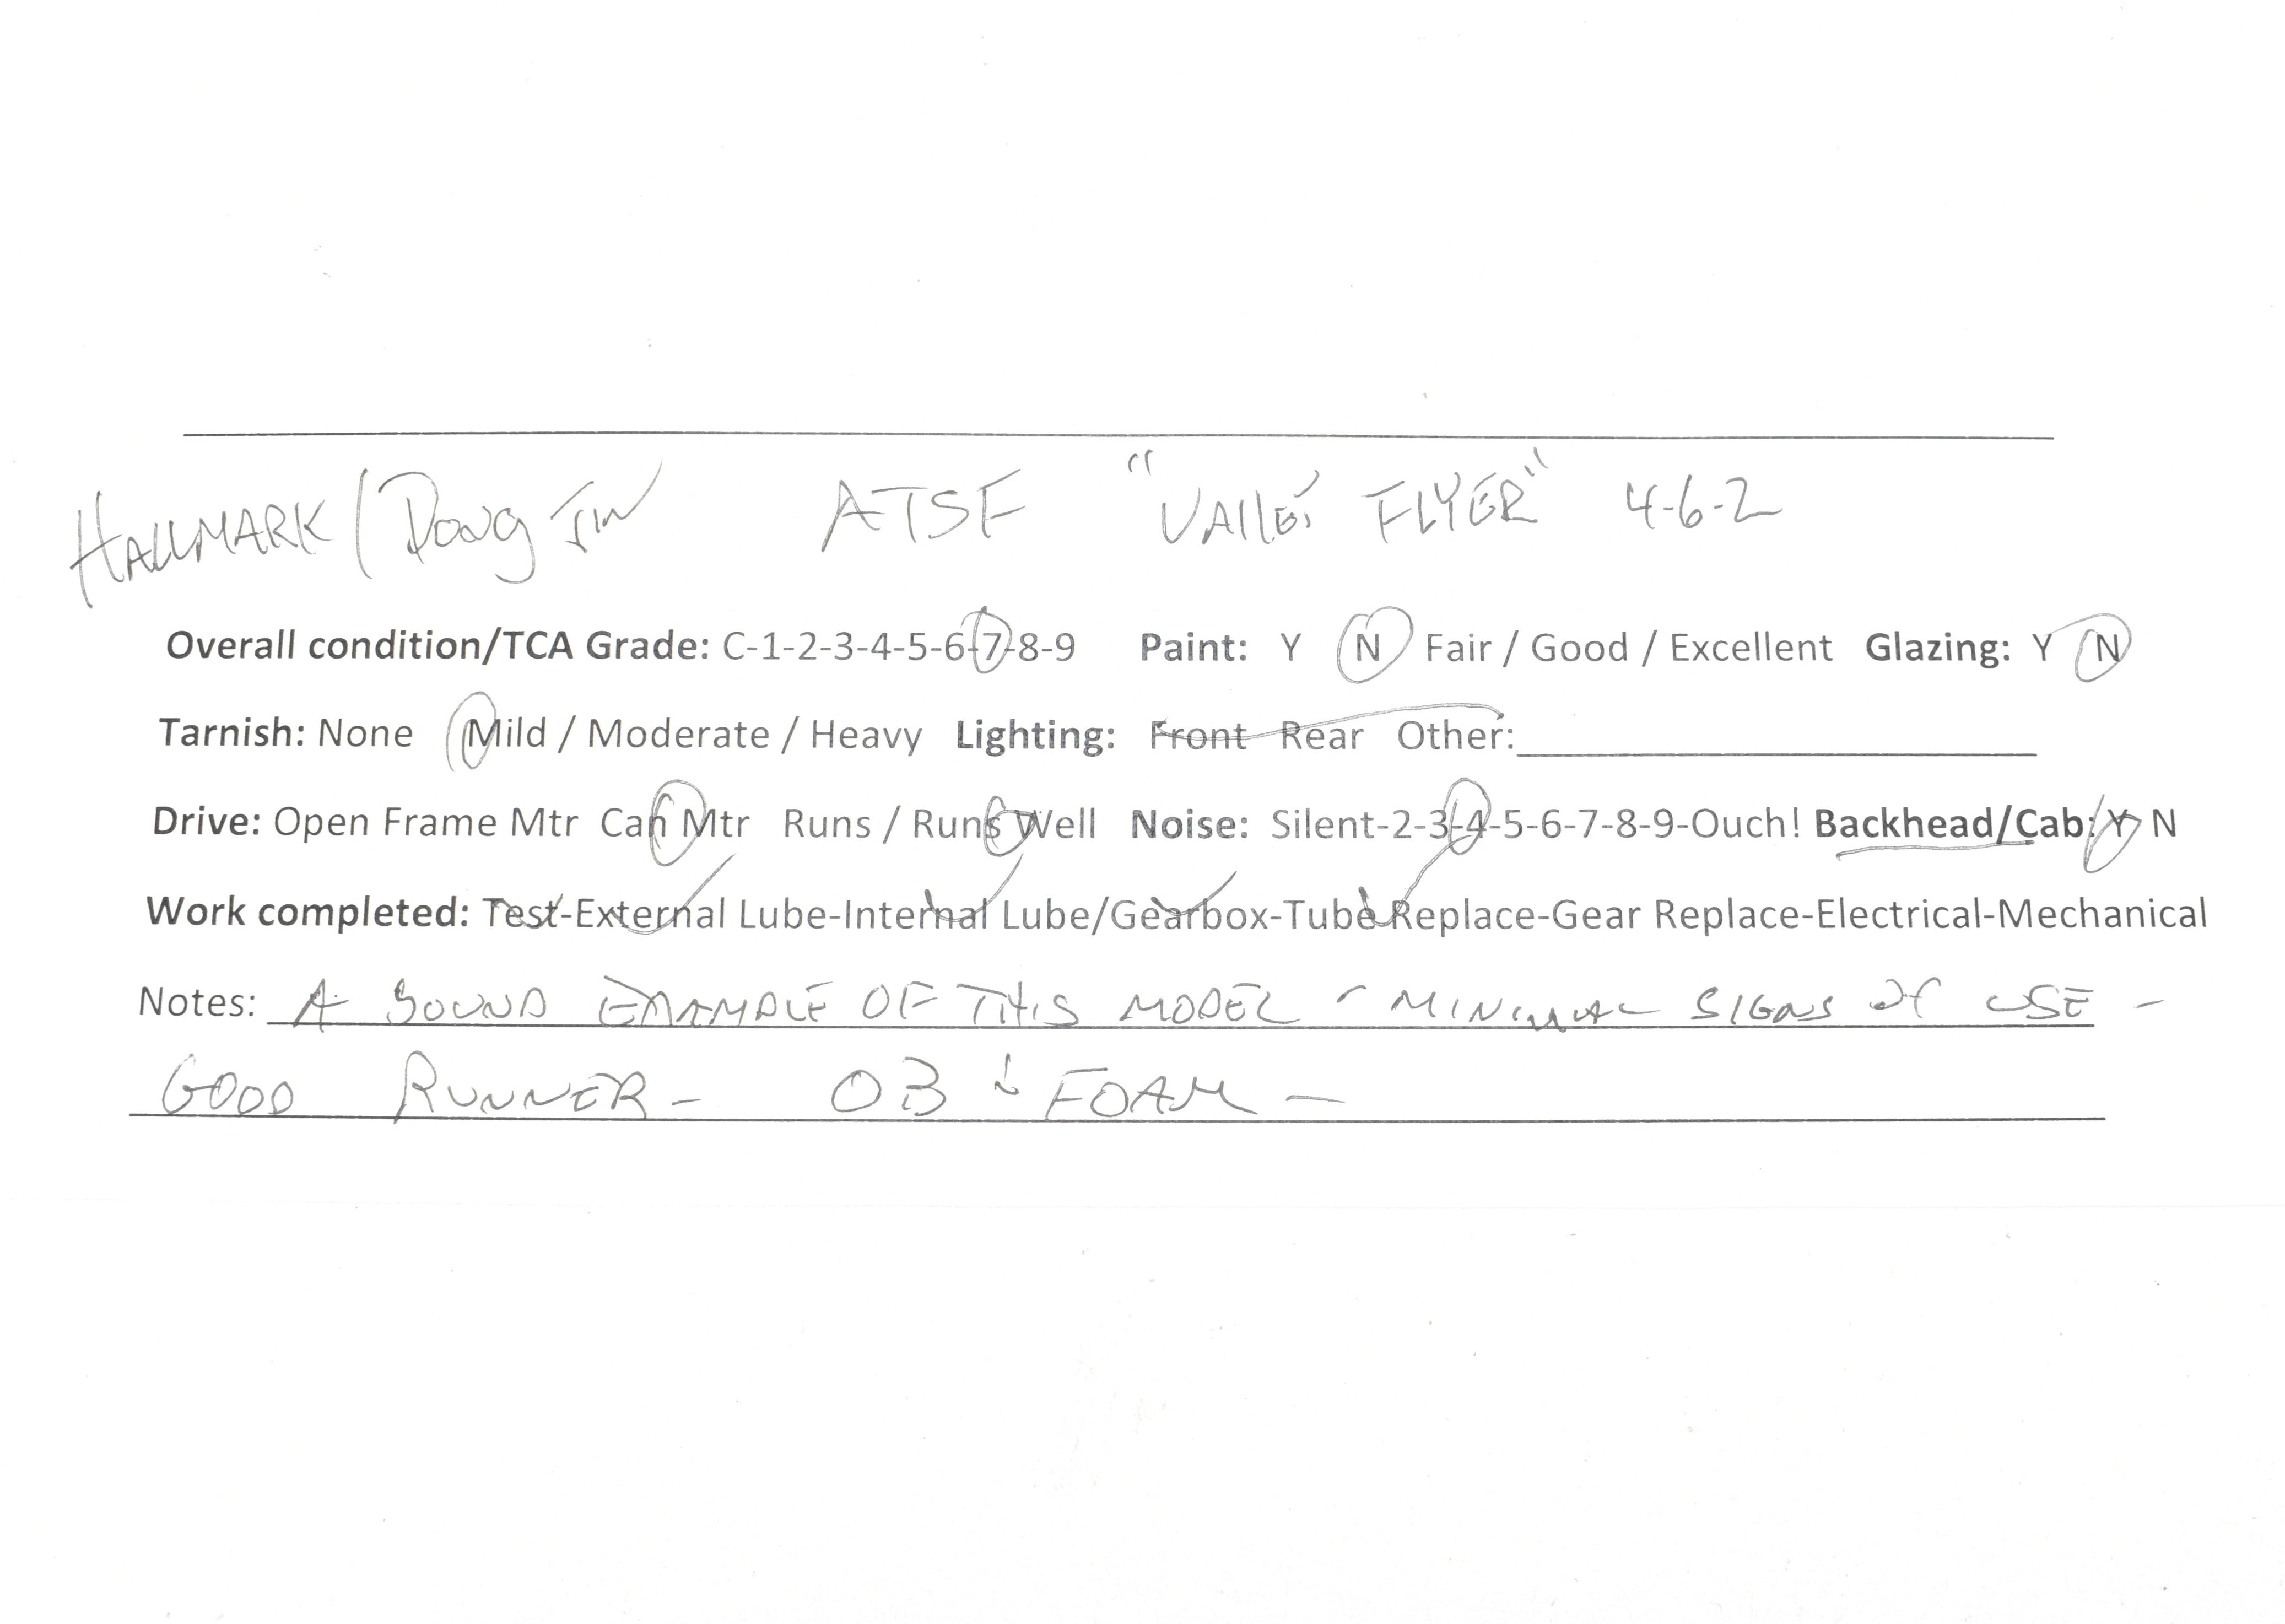 HALLMARK / Dong Jin ATSF "VALLEY FLYER" 4-6-2
Overall condition/TCA Grade: C-1-2-3-4-5-6-7-8-9 Paint: Y N Fair / Good / Excellent Glazing: Y N
Tarnish: None Mild / Moderate / Heavy Lighting: Front Rear Other:
Drive: Open Frame Mtr Can Mtr Runs / Runs Well Noise: Silent-2-3-4-5-6-7-8-9-Ouch! Backhead/Cab: Y N
Work completed: Test-External Lube-Internal Lube/Gearbox-Tube Replace-Gear Replace-Electrical-Mechanical
Notes: A SOUND EXAMPLE OF THIS MODEL - MINIMAL SIGNS OF USE -
GOOD RUNNER - OB & FOAM -